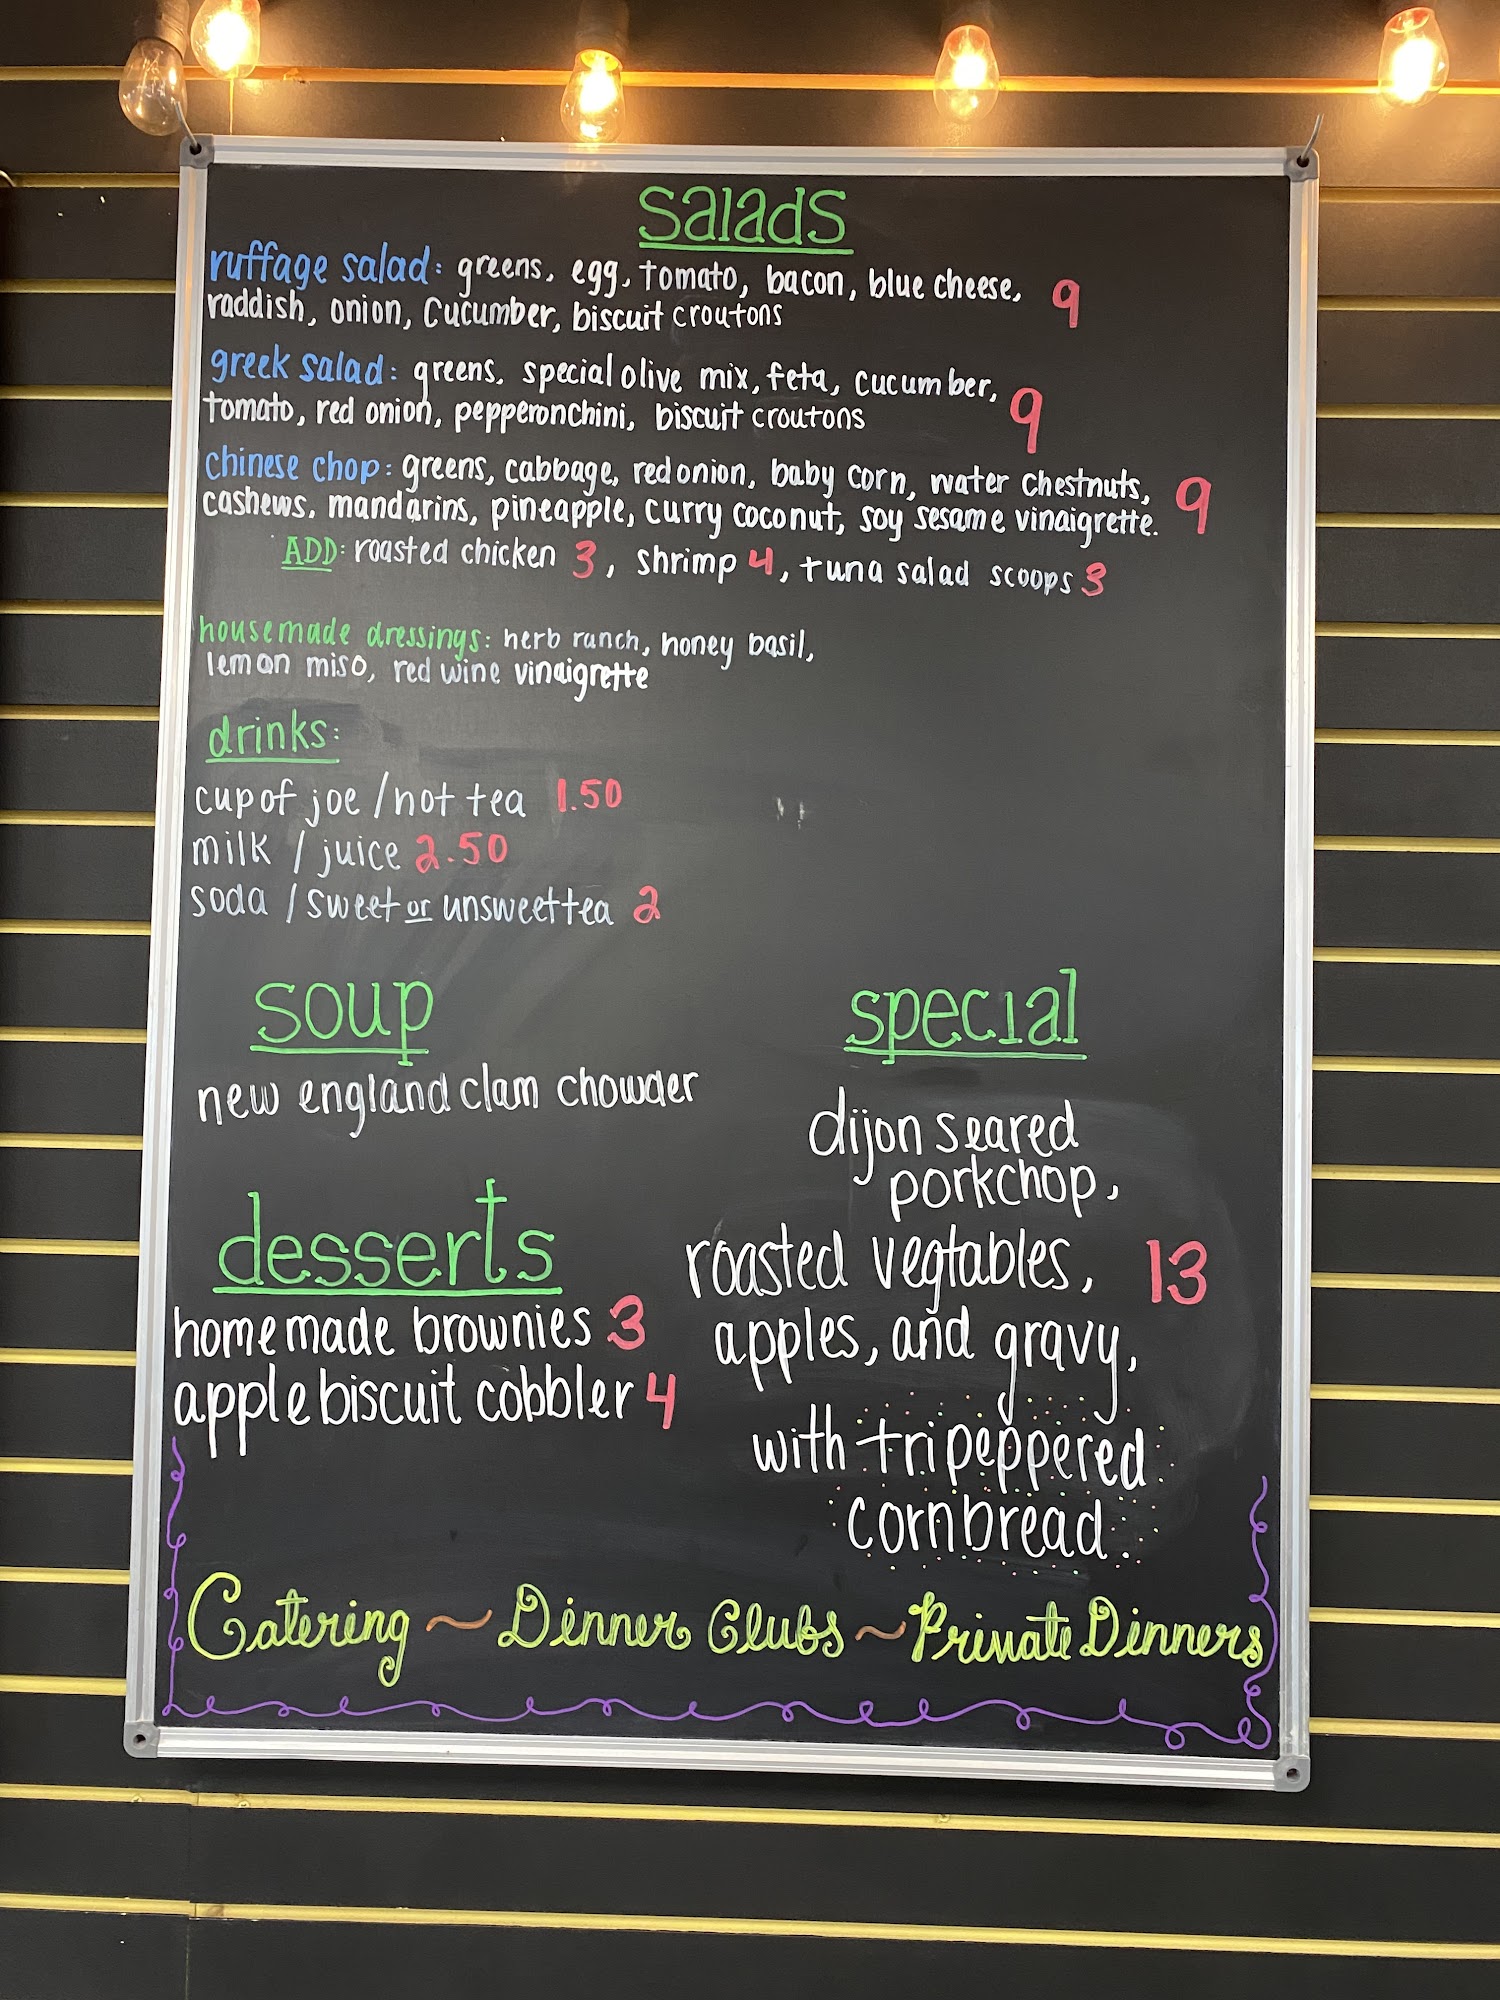 salads
ruffage salad: greens, egg, tomato, bacon, blue cheese, 9
raddish, onion, cucumber, biscuit croutons
greek salad: greens, special olive mix, feta, cucumber, 9
tomato, red onion, pepperonchini, biscuit croutons
chinese chop: greens, cabbage, red onion, baby corn, water chestnuts, 9
cashews, mandarins, pineapple, curry coconut, soy sesame vinaigrette.
ADD: roasted chicken 3, shrimp 4, tuna salad scoops 3
housemade dressings: herb ranch, honey basil,
lemon miso, red wine vinaigrette
drinks:
cup of joe / hot tea 1.50
milk / juice 2.50
soda / sweet or unsweet tea 2
soup
new england clam chowder
desserts
homemade brownies 3
apple biscuit cobbler 4
special
dijon seared
porkchop,
roasted vegtables, 13
apples, and gravy,
with tri peppered
cornbread.
Catering ~ Dinner Clubs ~ Private Dinners